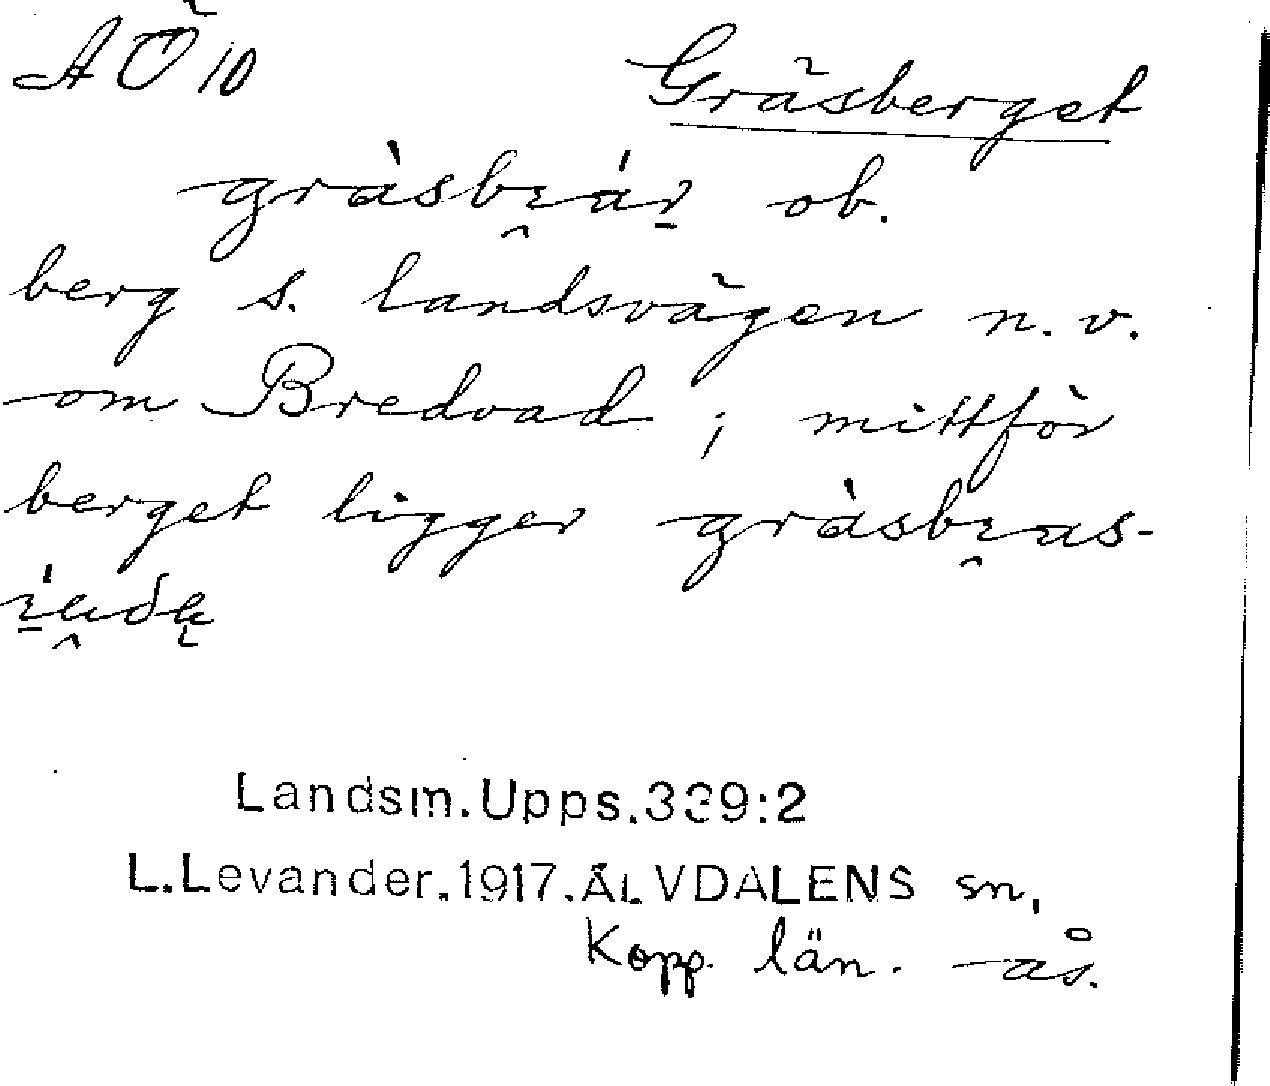 AÖ 10
Gräsberget
gràsbɪ̯áɪ̱ ob.
berg s. landsvägen n.v.
om Bredvad; mittför
berget ligger gràsbɪ̯as-
Landsm.Upps.339:2
L.Levander.1917.ÄLVDALENS sn,
Kopp. län. -ås.